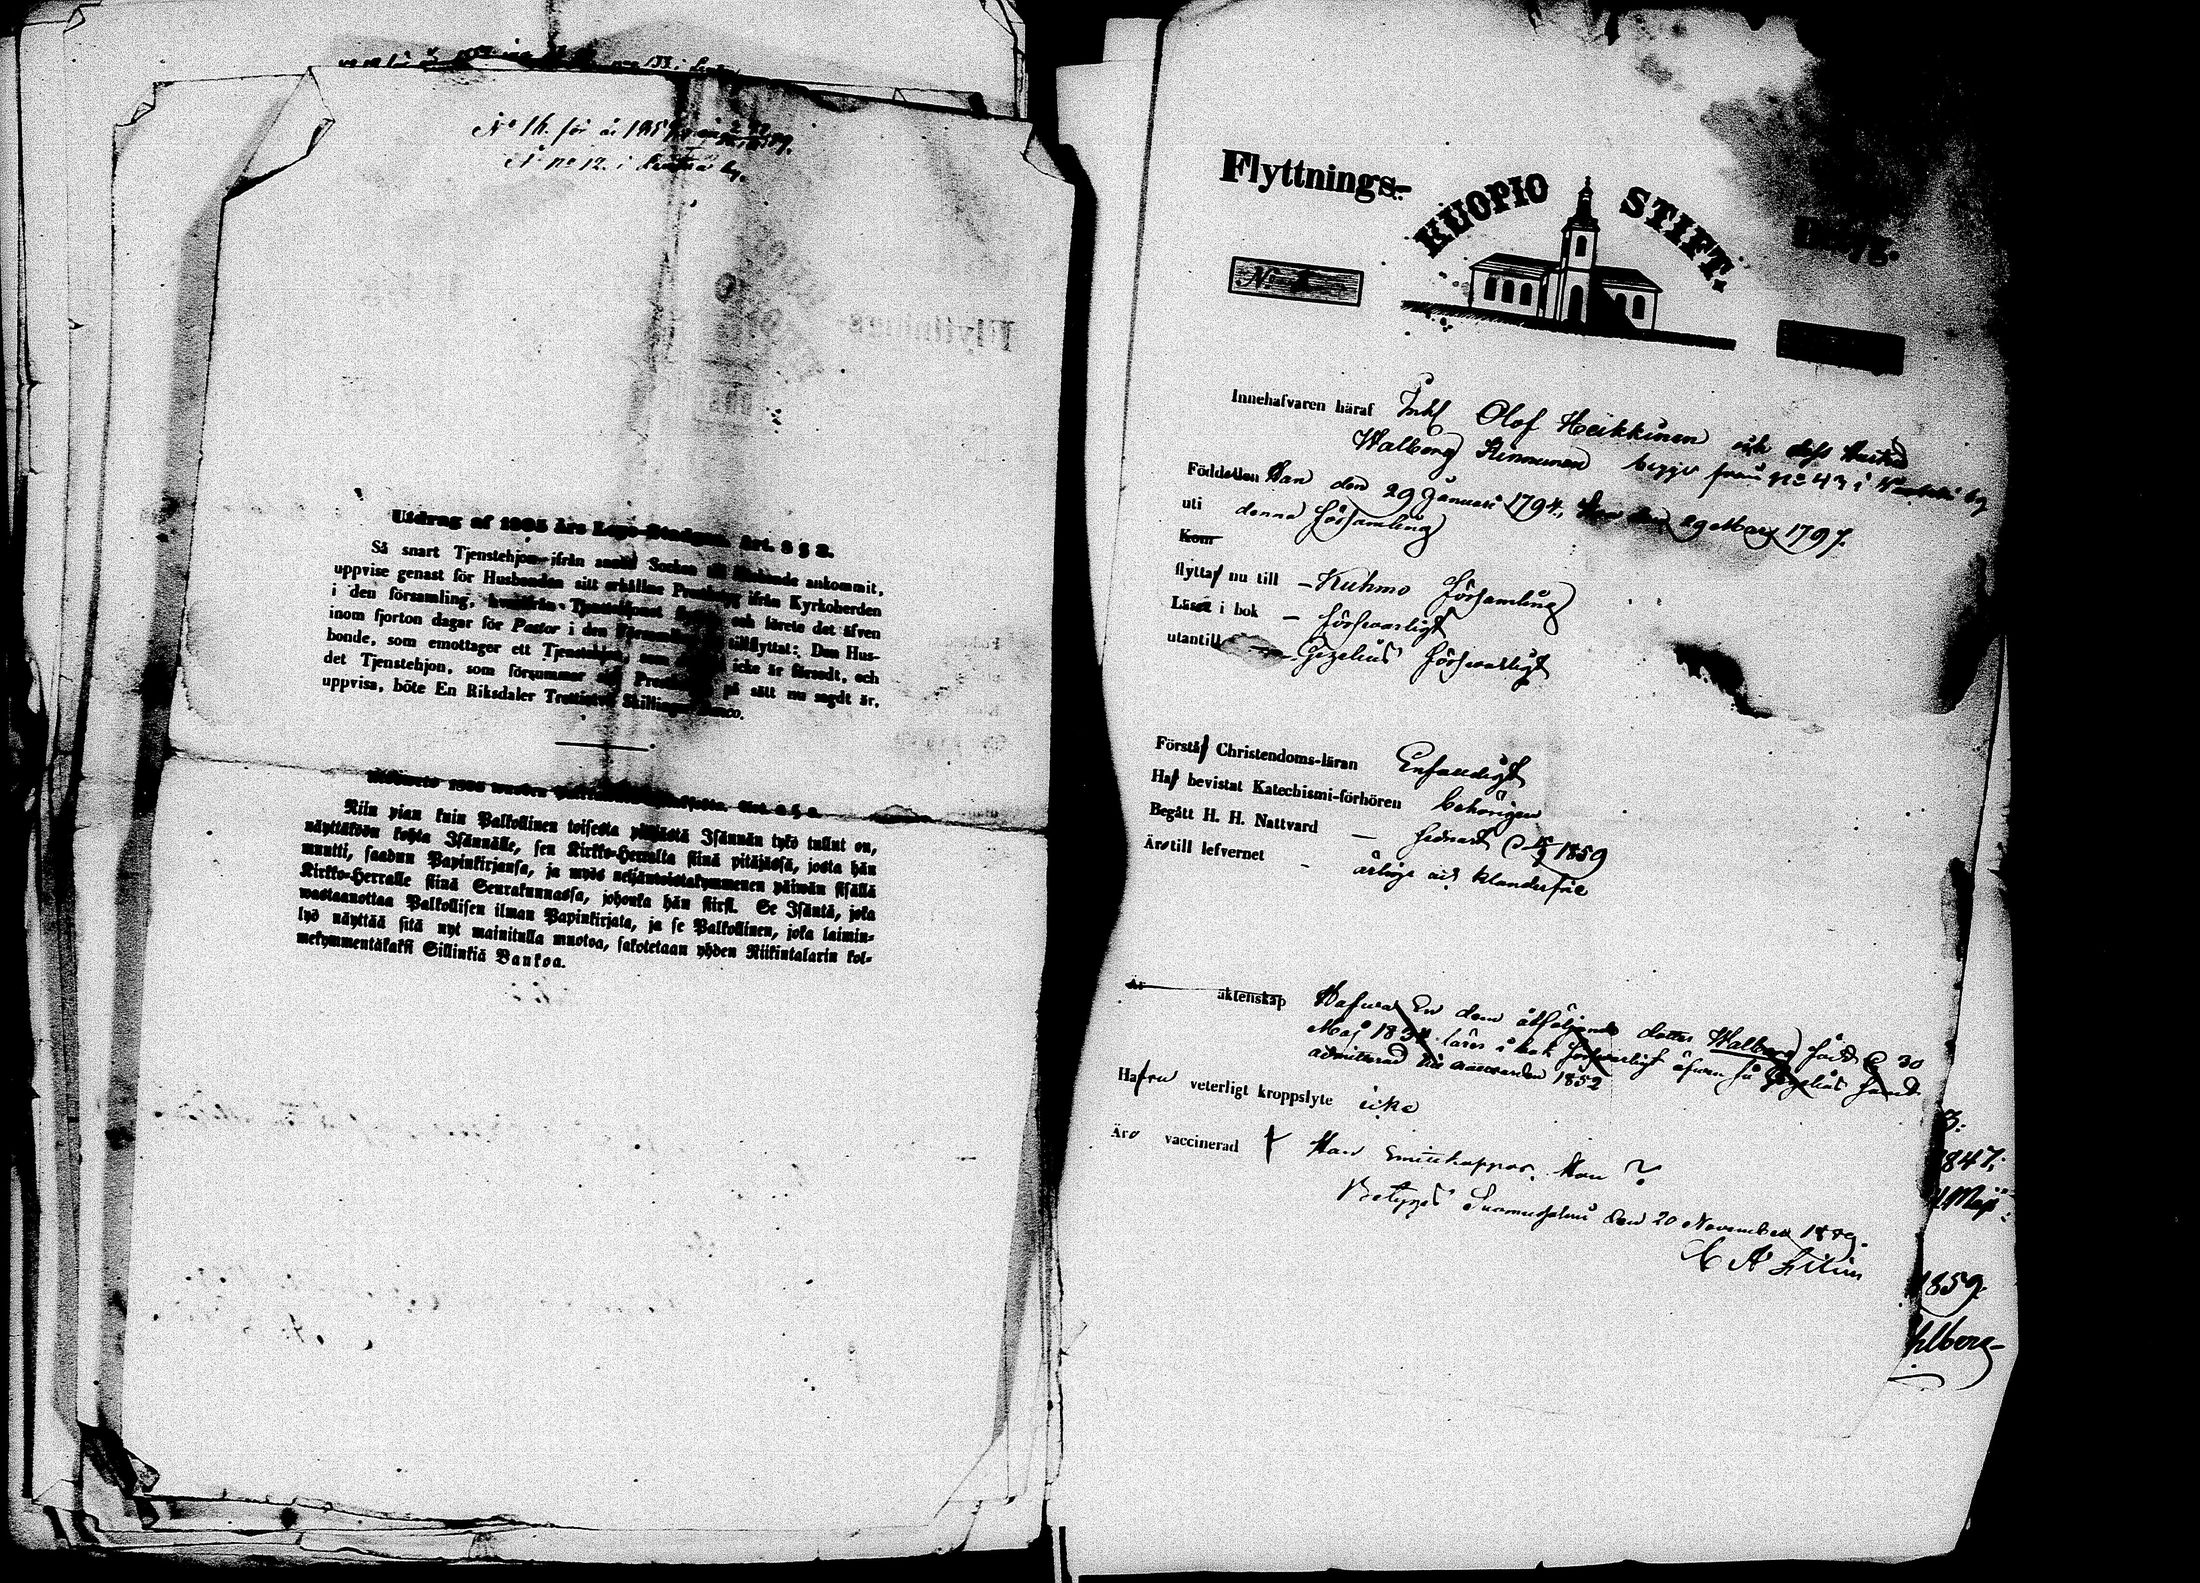 No 14. för år 1859
No 12. i by.
Utdrag af 1805 års Lego-Stadgan Art. 3 § 8.
Så snart Tjenstehjon ifrån annan Socken till Husbonde ankommit,
uppvise genast för Husbonden sitt erhållne Prestbetyg ifrån Kyrkoherden
i den församling, hvarifrån Tjenstehjonet och lärete det äfven
inom fjorton dagar för Pastor i den Församling tillflyttat: Den Hus-
bonde, som emottager ett Tjenstehjon, som icke är försedt, och
det Tjenstehjon, som försummar att Prestbetyg på sätt nu sagdt är,
uppvisa, böte En Riksdaler Trettiotvå Skillingar Banco.
1805 wuoden Art. 3 § 8.
Niin pian kuin Palkollinen toisesta pitäjästä Isännän tykö tullut on,
näyttäköön kohta Isännälle, sen Kirkko-Herralta siinä pitäjässä, josta hän
muutti, saadun Papinkirjansa, ja myös neljäntoistakymmenen päiwän sisällä
Kirkko-Herralle siinä Seurakunnassa, johonka hän siirsi. Se Isäntä, joka
wastaanottaa Palkollisen ilman Papinkirjata, ja se Palkollinen, joka laimin-
lyö näyttää sitä nyt mainitulla muotoa, sakotetaan yhden Riikintalarin kol-
mekymmentäkaksi Sillinkiä Bankoa.
Flyttnings- KUOPIO STIFT. Betyg.
No
Innehafvaren häraf Inh Olof Heikkinen och dess hustru
Walborg Kinnunen begge från No 43 i by
Födde den Han den 29 Januari 1794, Hon den 29 Maij 1797.
uti denna församling
Kom
flytta nu till – Kuhmo församling
Läsa i bok – försvarligt
utantill – Gezelius försvarligt
Förstå Christendoms-läran Enfaldigt
Haf bevistat Katechismi-förhören behörigen
Begått H. H. Nattvard – sednast 1859
Äro till lefvernet – ärlige och klanderfrie
Är äktenskap Hafwa En dem åtföljande dotter Walborg född d 30
Maj 1834 läser i bok försvarligt äfven så Gezelius samt
admitterad till nattvarden 1852
Hafva veterligt kroppslyte icke
Äro vaccinerad Han Smittkoppor. Hon ?
Betygas Suomussalmi den 20 November 1859.
3.
1847,
Maji
1859.
hlberg